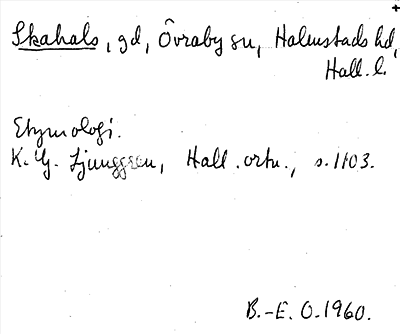 Skahals, gd, Övraby sn, Halmstads hd,
Hall. l.
Etymologi.
K. G. Ljunggren, Hall. ortn., s. 1103.
B.-E. O. 1960.